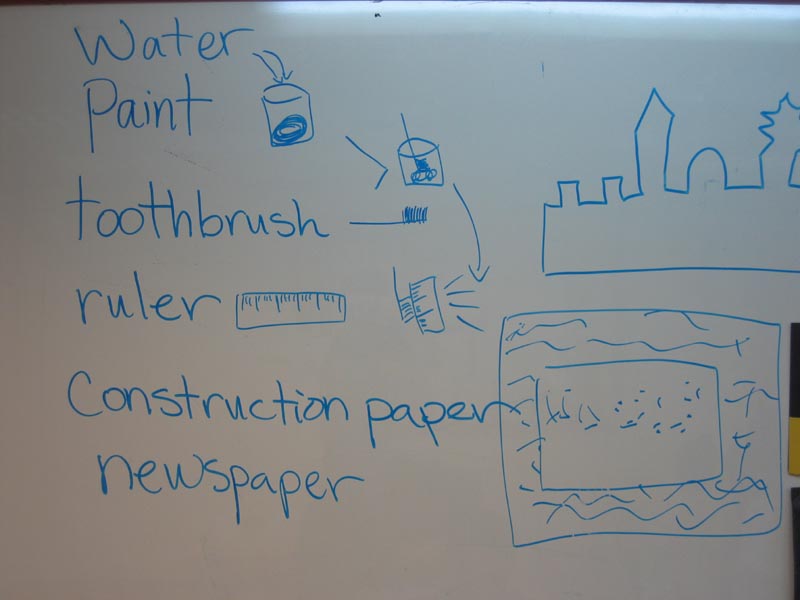 Water
Paint
toothbrush
ruler
Construction paper
newspaper